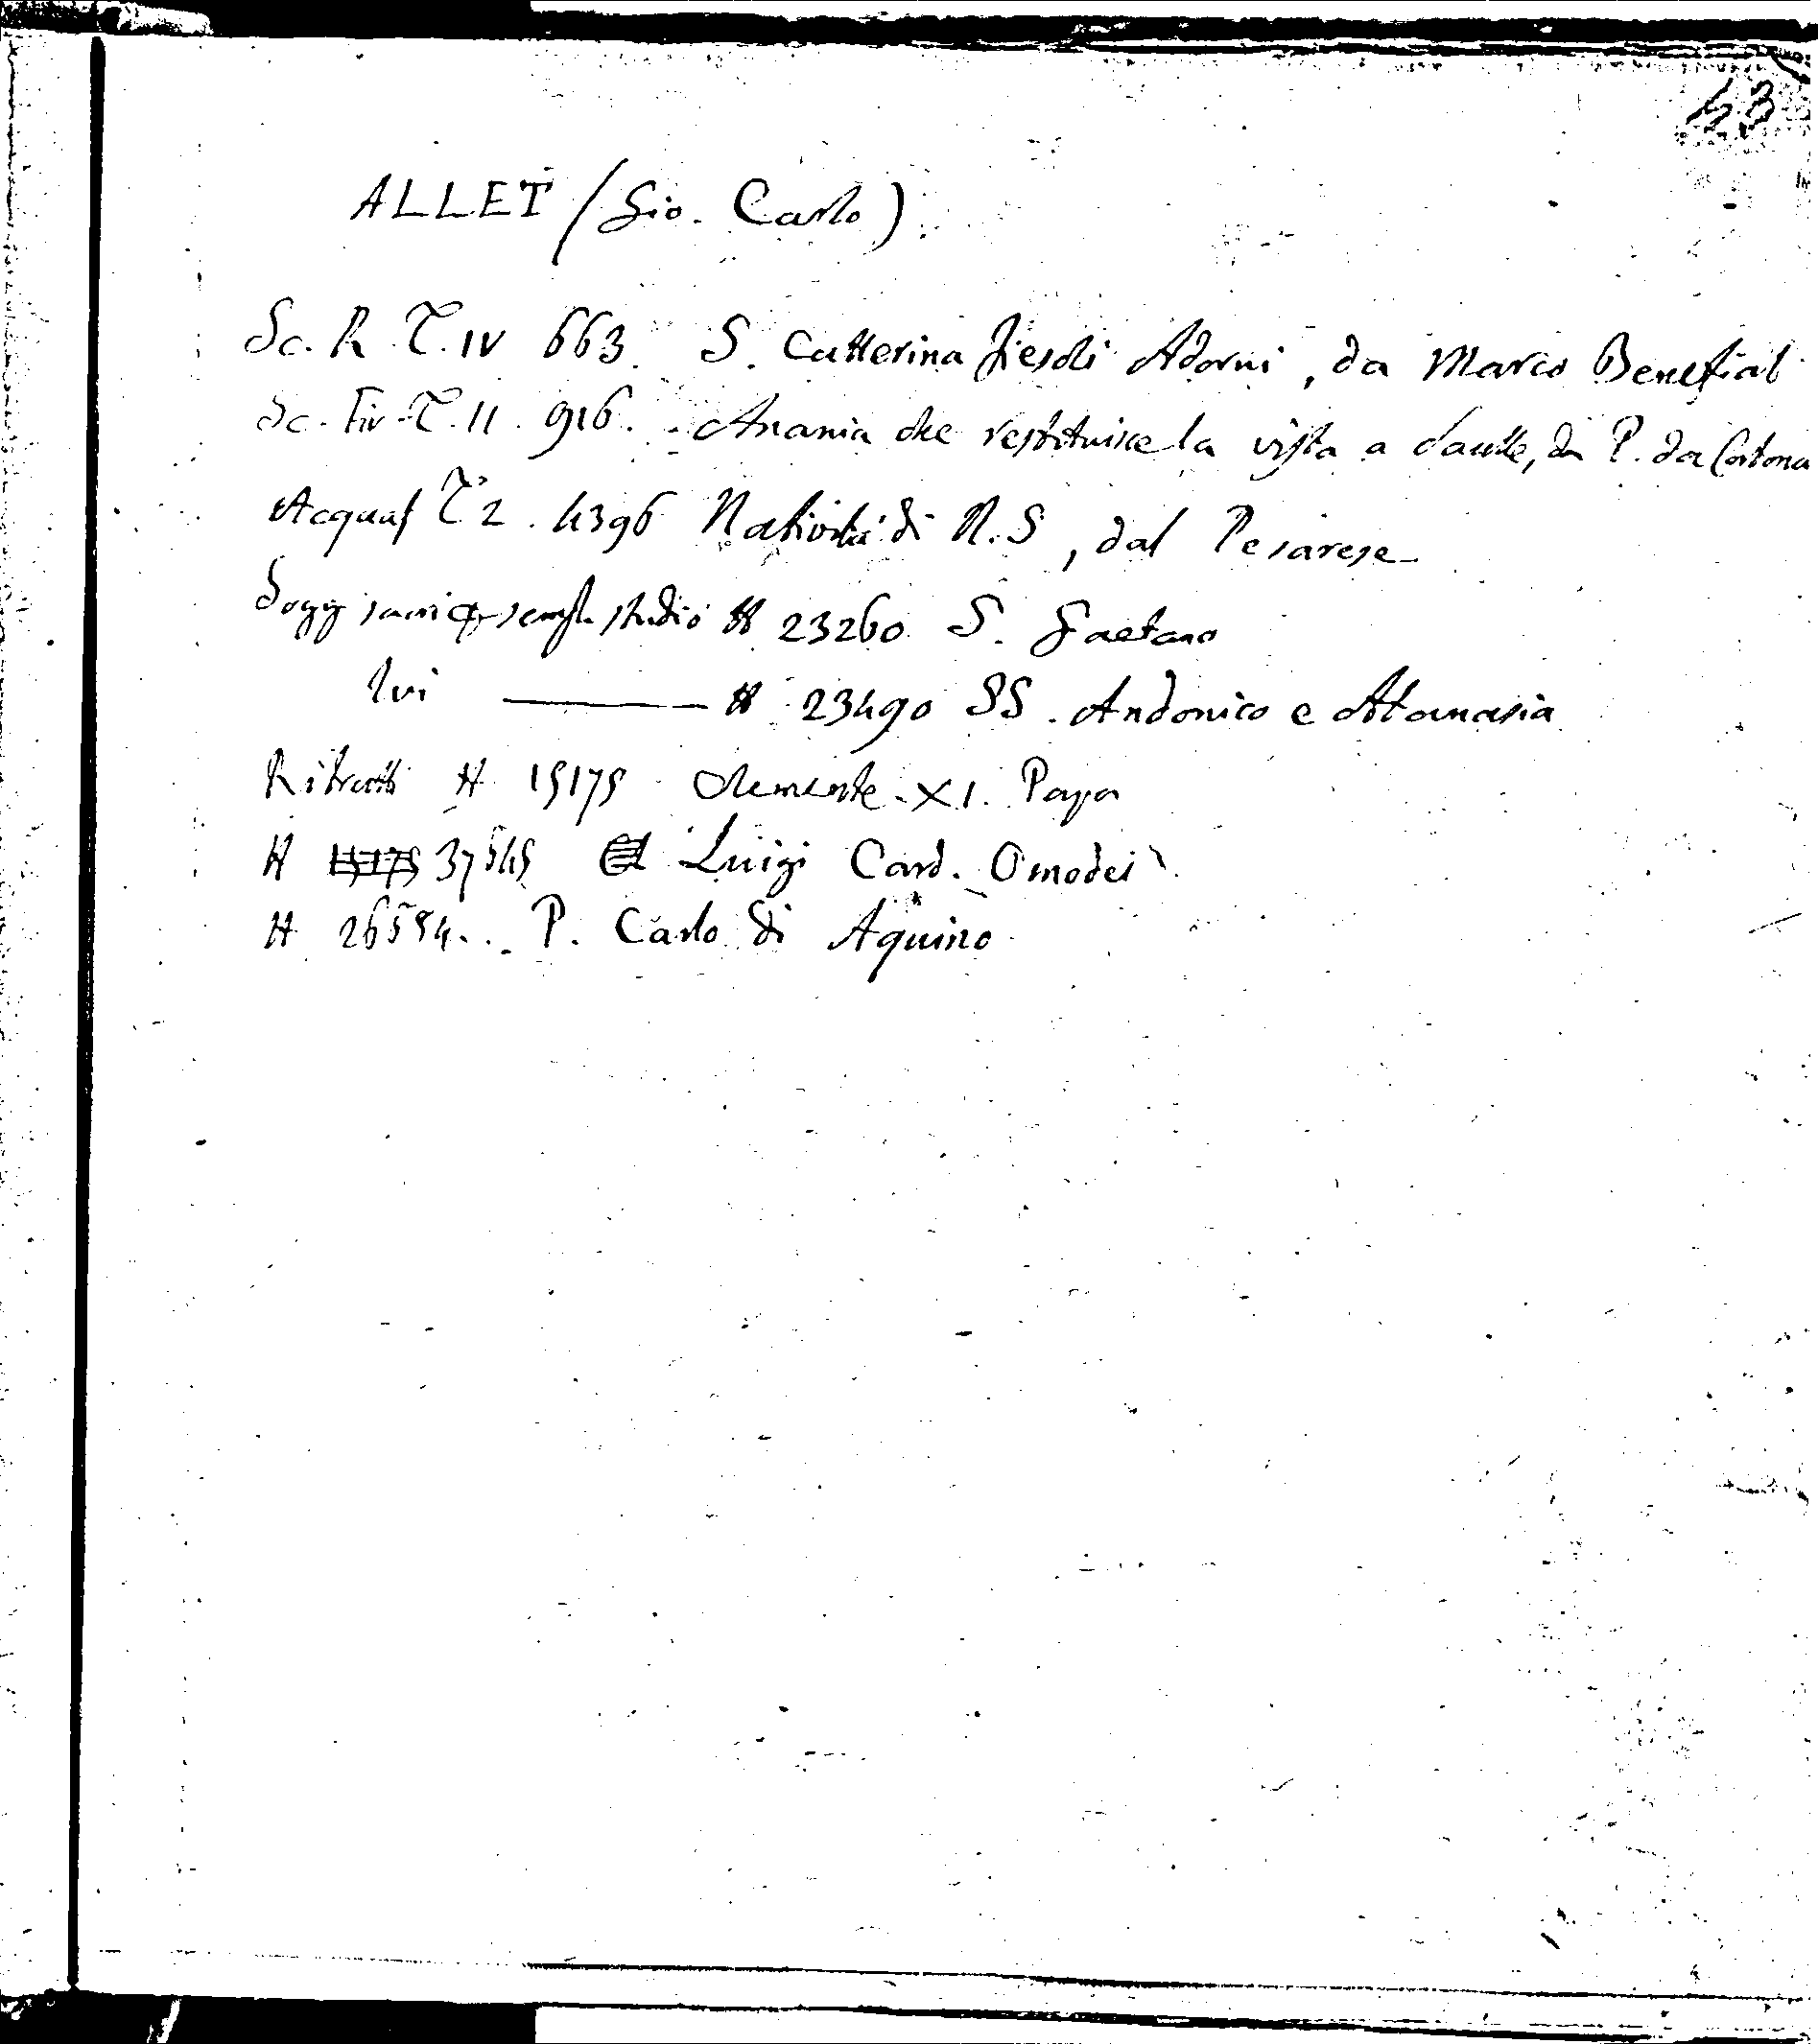 43
ALLET (Gio. Carlo)
Sc. R. T. IV 663. S. Catterina Fieschi Adorni, da Marco Benefial
Sc. Fiv. T. II. 916. Anania che restituisce la vista a Saulle, da P. da Cortona
Acquaf T. 2. 4396 Natività di N. S, dal Pesarese
Sogg sacri studio # 23260 S. Gaetano
Ivi — # 23490 SS. Andonico e Atanasia
Ritratti # 15175 Clemente XI. Papa
# 15175 37545 Luigi Card. Omodei
# 26554.. P. Carlo di Aquino